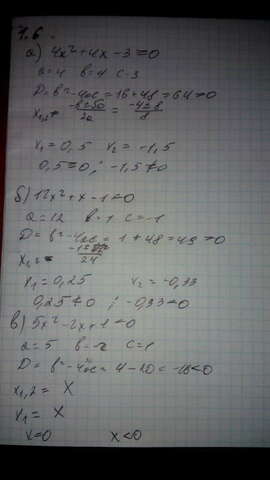 7.6.
а) 4x²+4x-3=0
a=4 b=4 c=3
D=b²-4ac=16+48=64>0
x₁,₂= = -4±8/8
x₁=0,5 x₂=-1,5
0,5 ; -1,5≠0
б) 12x²+x-1=0
a=12 b=1 c=-1
D=b²-4ac=1+48=49>0
x₁,₂=
x₁=0,25 x₂=-0,33
0,25≠0 ; -0,33≠0
в) 5x²-2x+1=0
a=5 b=-2 c=1
D=b²-4ac=4-20=-16<0
x₁,₂= X
x₁= X
x=0 x<0